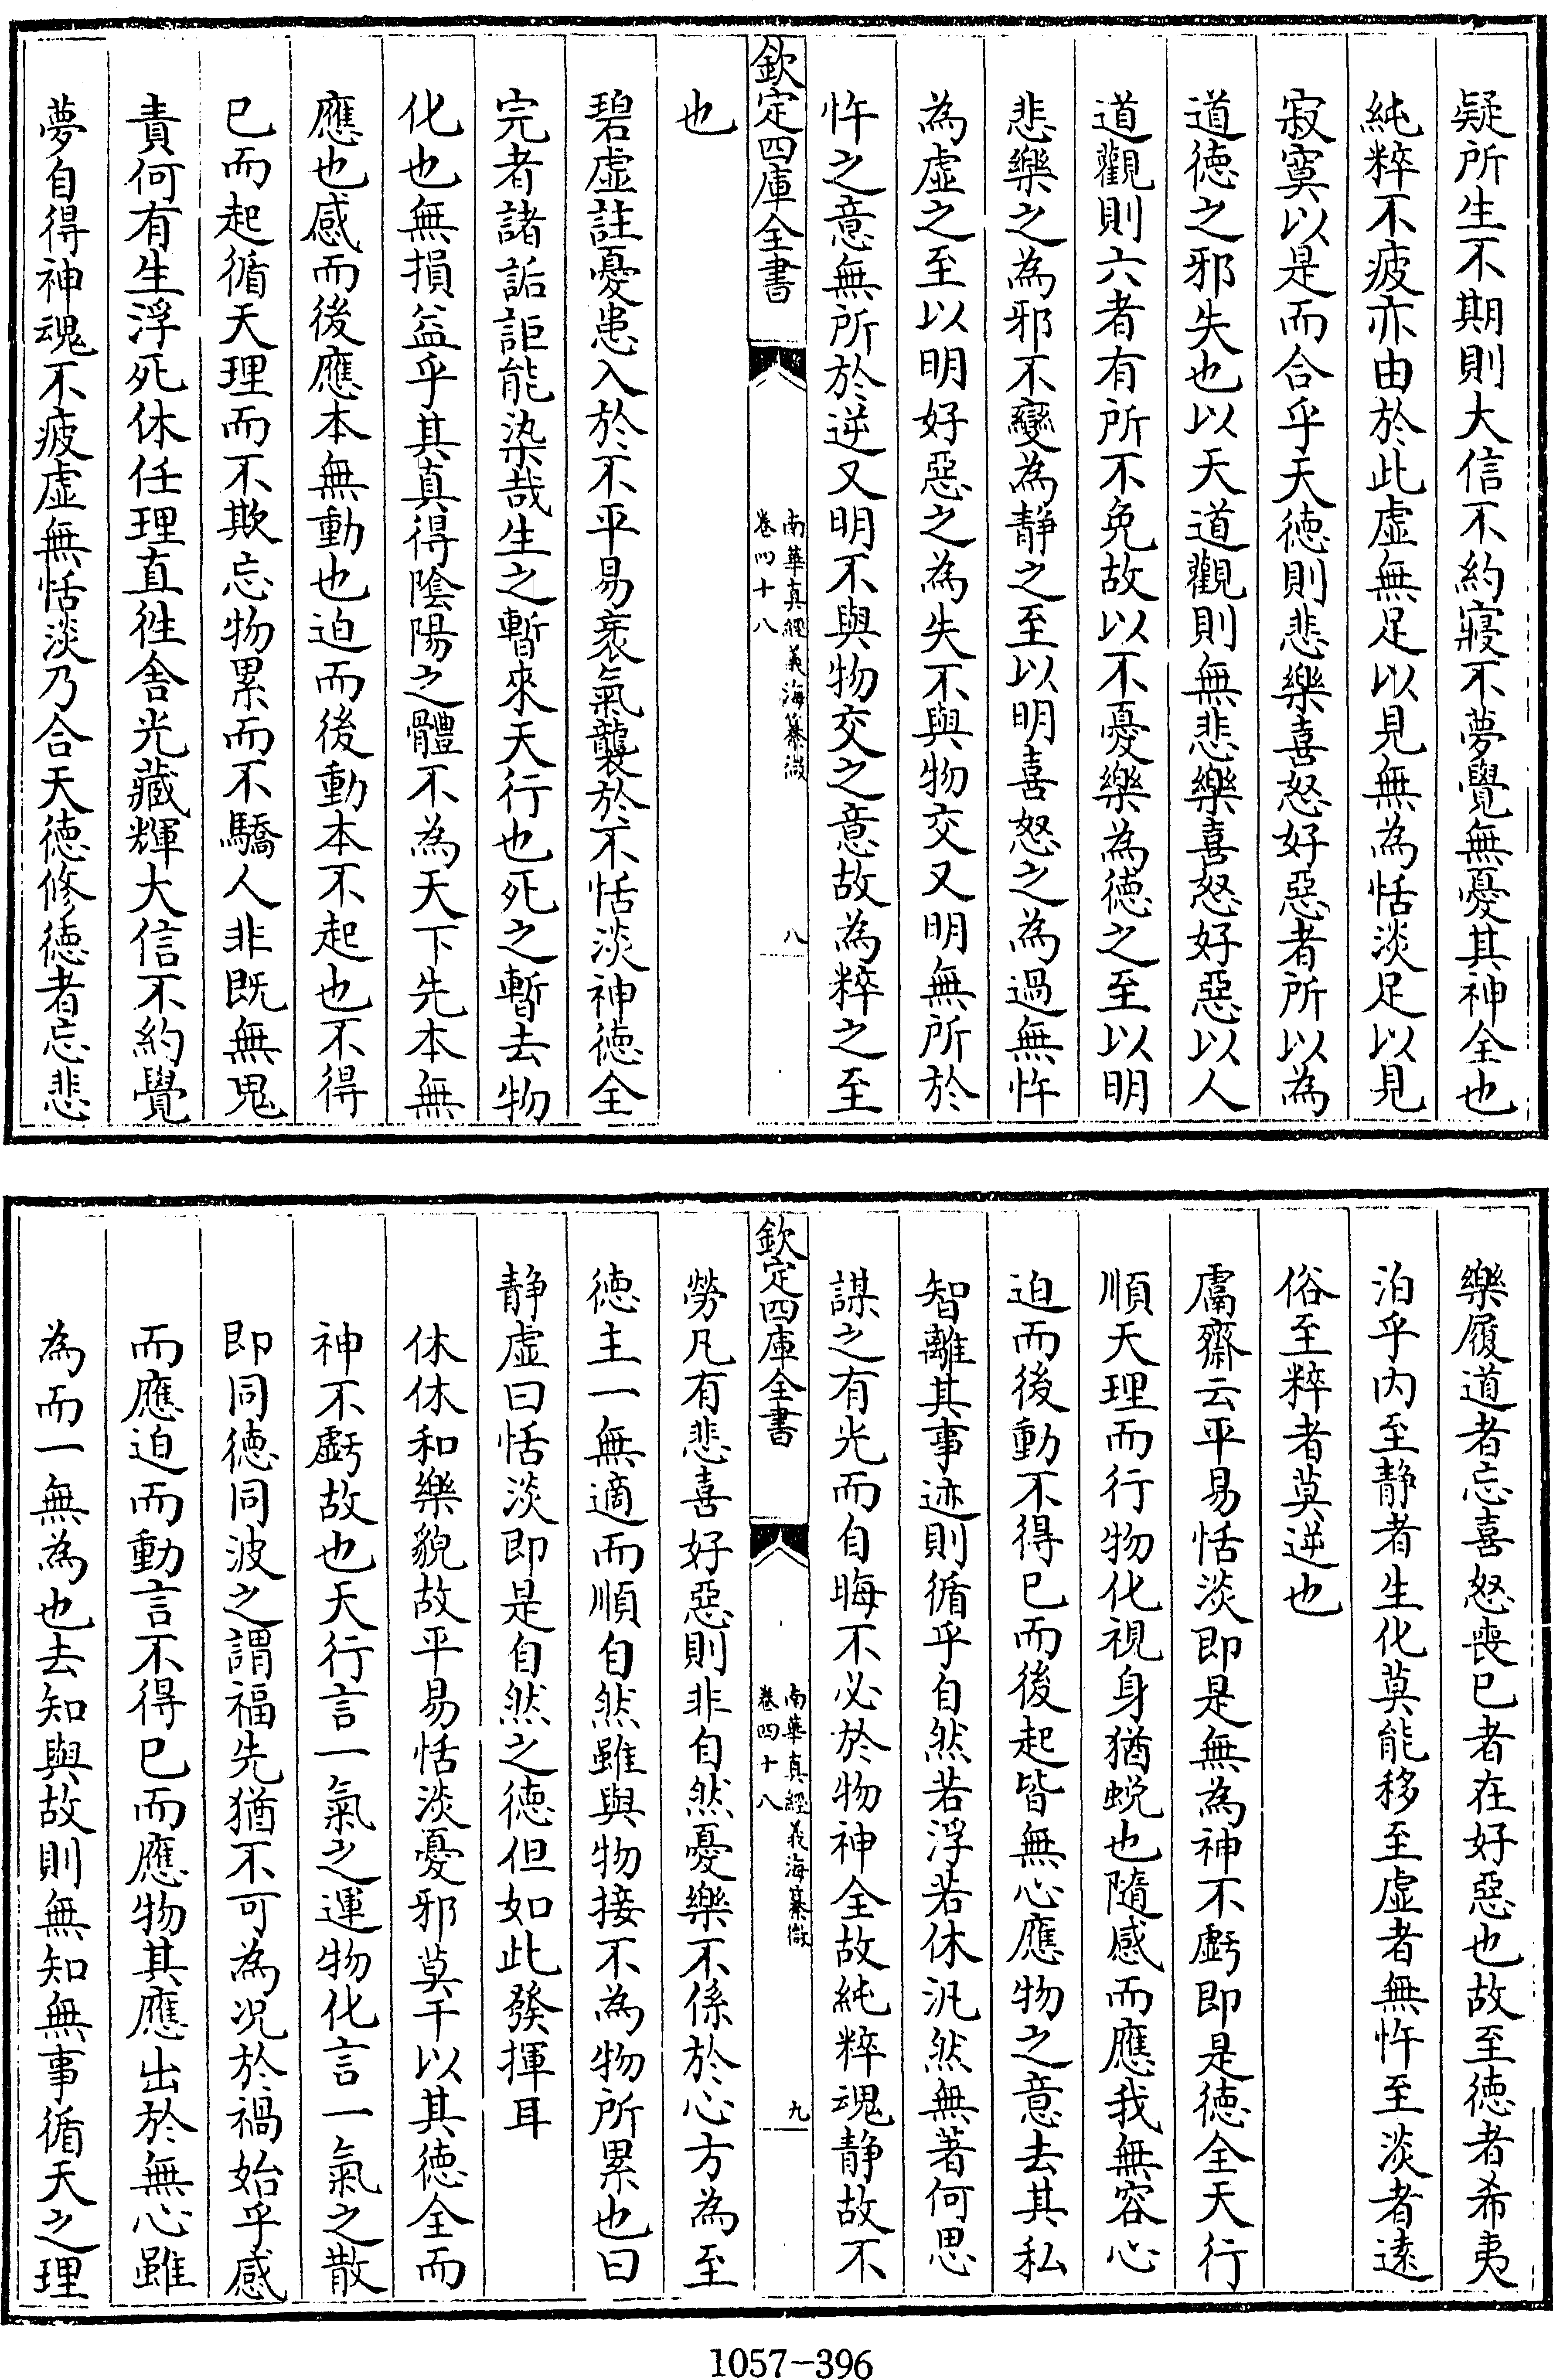 疑所生不期則大信不約寢不夢覺無憂其神全也
純粹不疲亦由於此虛無足以見無為恬淡足以見
寂寞以是而合乎天徳則悲樂喜怒好惡者所以為
道徳之邪失也以天道觀則無悲樂喜怒好惡以人
道觀則六者有所不免故以不憂樂為徳之至以明
悲樂之為邪不變為静之至以明喜怒之為過無忤
為虛之至以明好惡之為失不與物交又明無所於
忤之意無所於逆又明不與物交之意故為粹之至
欽定四庫全書
南華真經義海纂微
卷四十八
八
也
碧虛註憂患入於不平易衺氣襲於不恬淡神徳全
完者諸詬詎能染哉生之暫來天行也死之暫去物
化也無損益乎其真得陰陽之體不為天下先本無
應也感而後應本無動也迫而後動本不起也不得
已而起循天理而不欺忘物累而不驕人非既無鬼
責何有生浮死休任理直徃舍光藏輝大信不約覺
夢自得神魂不疲虛無恬淡乃合天徳修徳者忘悲
樂履道者忘喜怒喪已者在好惡也故至徳者希夷
泊乎内至静者生化莫能移至虛者無忤至淡者逺
俗至粹者莫逆也
鬳齋云平易恬淡即是無為神不虧即是徳全天行
順天理而行物化視身猶蜕也隨感而應我無容心
迫而後動不得已而後起皆無心應物之意去其私
智離其事迹則循乎自然若浮若休汎然無著何思
謀之有光而自晦不必於物神全故純粹魂静故不
欽定四庫全書
南華真經義海纂微
卷四十八
九
勞凡有悲喜好惡則非自然憂樂不係於心方為至
徳主一無適而順自然雖與物接不為物所累也曰
静虛曰恬淡即是自然之徳但如此發揮耳
休休和樂貌故平易恬淡憂邪莫干以其徳全而
神不虧故也天行言一氣之運物化言一氣之散
即同徳同波之謂福先猶不可為况於禍始乎感
而應迫而動言不得已而應物其應出於無心雖
為而一無為也去知與故則無知無事循天之理
1057-396